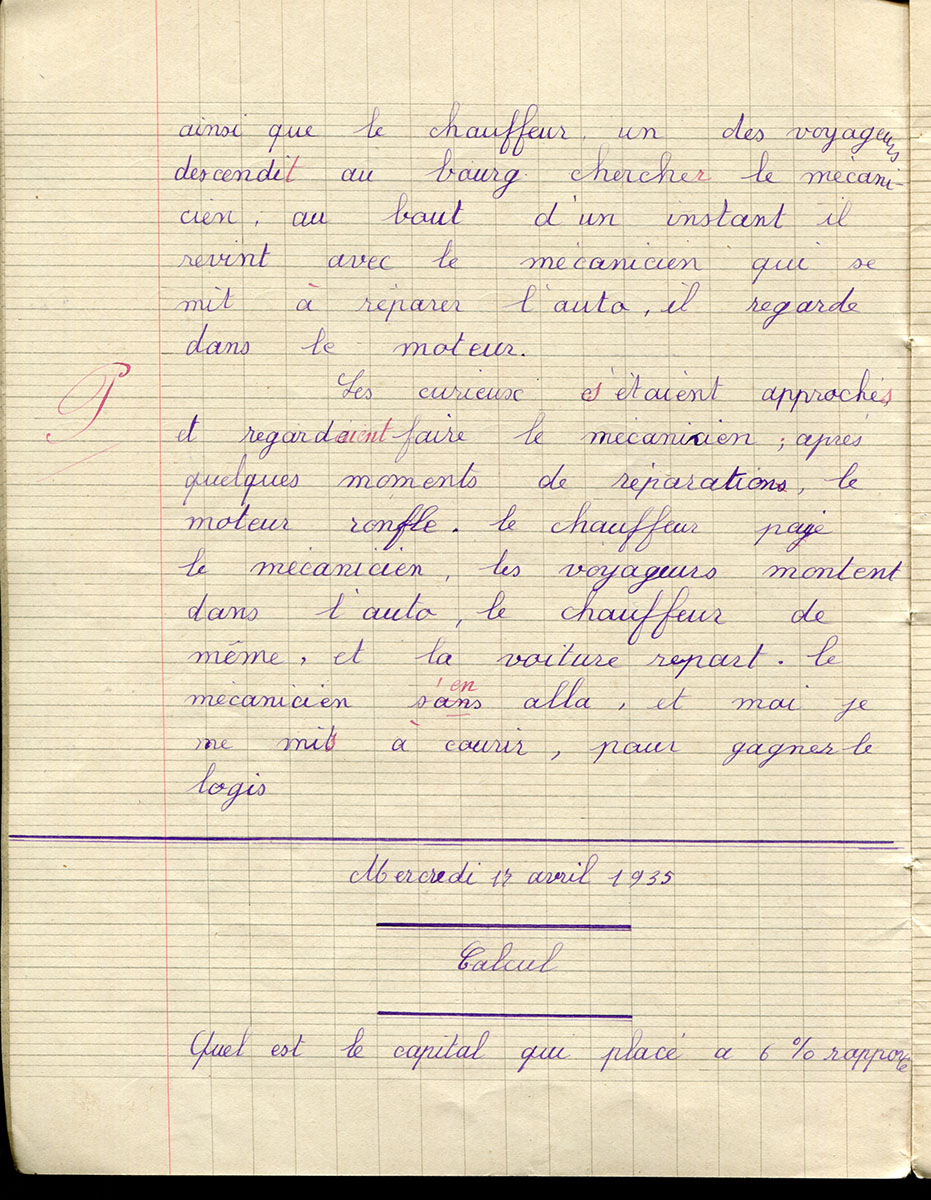 ainsi que le chauffeur, un des voyageurs
descendit au bourg chercher le mécani-
cien, au bout d'un instant il
revint avec le mécanicien qui se
mit à réparer l'auto, il regarde
dans le moteur.
Les curieux s'étaient approchés
et regardaient faire le mécanicien ; après
quelques moments de réparations, le
moteur ronfle. le chauffeur paye
le mécanicien, les voyageurs montent
dans l'auto, le chauffeur de
même, et la voiture repart. le
en
mécanicien s'ans alla, et moi je
me mis à courir, pour gagner le
logis
Mercredi 17 avril 1935
Calcul
Quel est le capital qui placé a 6 % rapporte